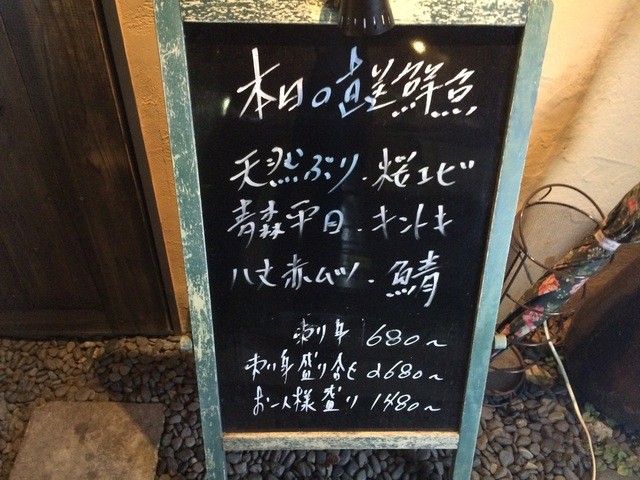 本日の直送鮮魚
天然ぶり・桜エビ
青森平目・キントキ
八丈赤ムツ・鯖
刺身 680~
刺身盛り合セ 2680~
お一人様盛り 1480~